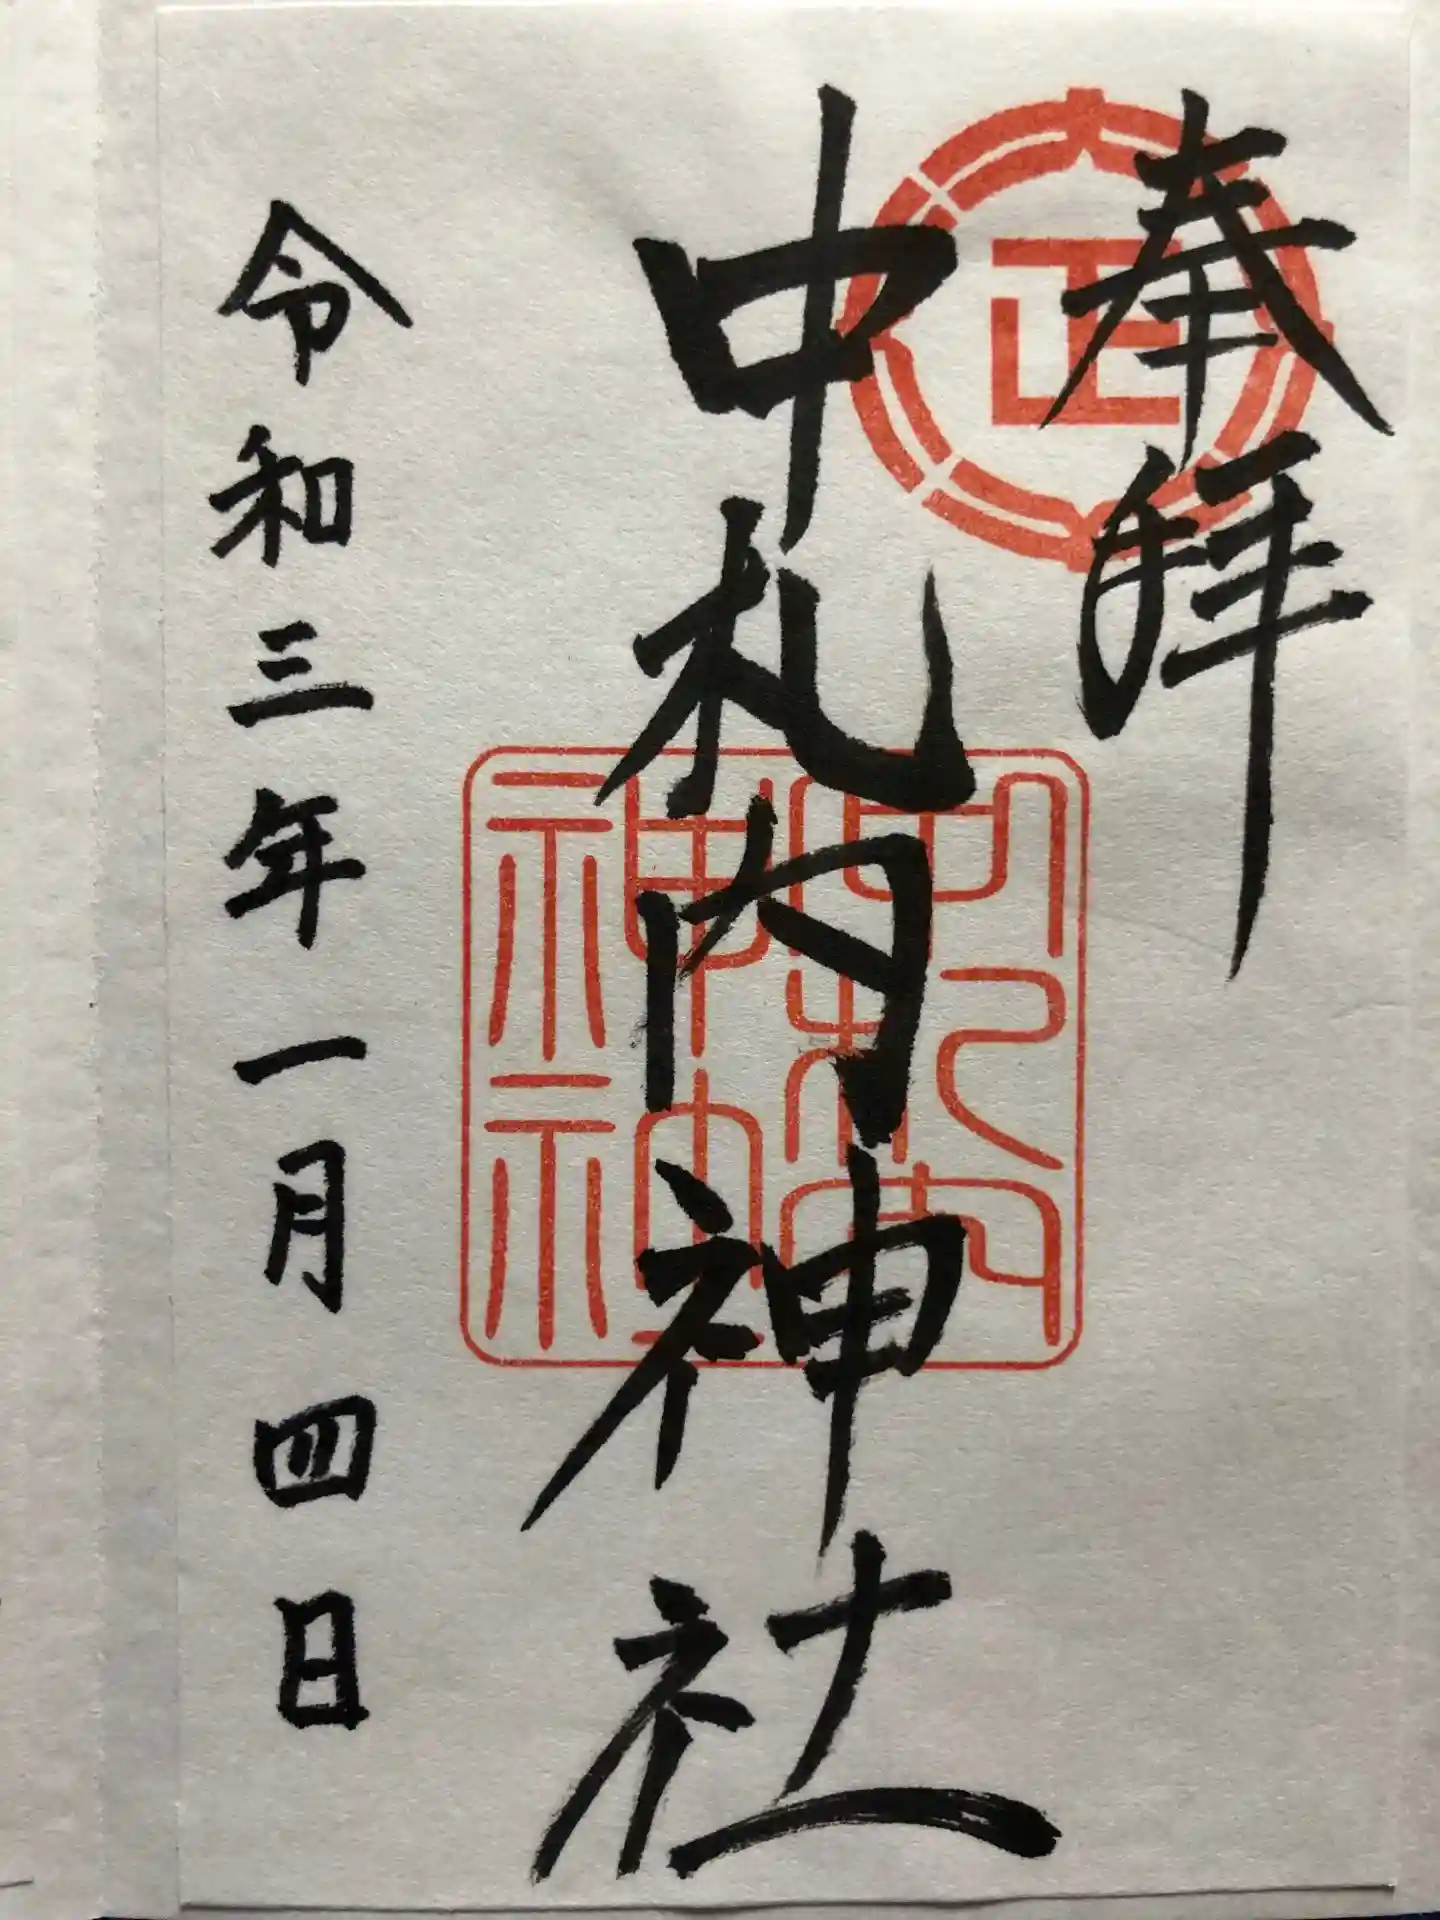 奉拝
正
中札内神社
中札内
神社
令和三年一月四日